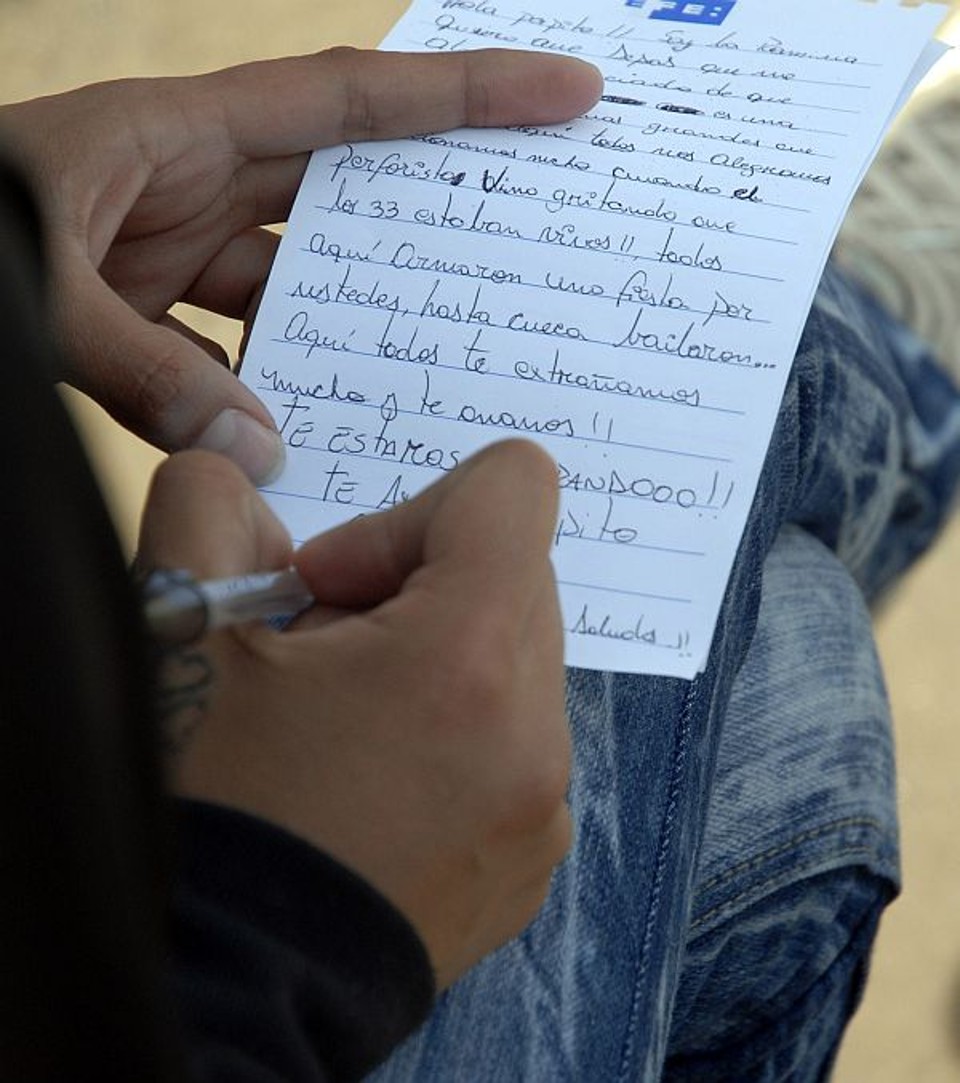 EFE:
Hola papito!! Soy la Romina
Quiero que sepas que no
ciando de que
es una
mas grandes que
aquí todos nos alegramos
mucho cuando el
perforista vino gritando que
los 33 estaban vivos!! todos
aquí Armaron una fiesta por
ustedes, hasta cueca bailaron...
Aquí todos te extrañamos
mucho y te amamos!!
TE ESTAMOS
TE
pito
Saludos!!